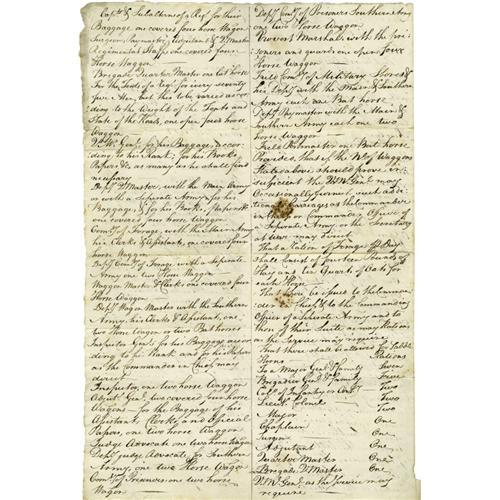 Capts & Subalterns of a Regt for their
Baggage one covered four horse Wagon
Surgeon, Paymaster, Adjutant & Qr Master
Regimental Staff one covered four
Horse Waggon
Brigade Quarter Master one bat horse
For the Tents of a Regt for every seventy
five Men, but this to be varied accor
ding to the Weight of the Tents and
State of the Roads, one open four horse
Waggon
Qr Mr Genl for his Baggage, accor
ding to his Rank; for his Books,
Papers &c, as many as he shall find
necessary
Depy Qr Master, with the Main Army
or with a Separate Army for his
Baggage, & for his Books, Papers &c
one covered four horse Waggon
Comy of Forage, with the Main Army
his Clerks & Assistants, one covered four
horse Waggon
Depy Comy of Forage with a Separate
Army one two Horse Waggon
Waggon Master & Clerks one covered four
Horse Waggon
Depy Wagon Master with the Southern
Army, his Clerks & Assistant, one
two Horse Wagon or two Bat horses
Inspector Genl for his Baggage accor
ding to his Rank and for his Papers
as the Commander in Chief may
direct
Inspector, one two horse Waggon
Adjut Genl two covered four horse
Wagons for the Baggage of his
Assistant, Clerks, and Official
Papers, one two horse Waggon
Judge Advocate one two horse Wagon
Depy judge advocate, for Southern
Army, one two Horse Wagon
Comy of Prisoners, one two horse
Wagon
Depy Comy of Prisoners Southern Army
one two Horse Waggon
Provost Marshall, with the pris
soners and guard, one open four
Horse Waggon
Field Comy of Military Stores &
his Depy with the Main & Southern
Army each one Bat horse
Depy Paymaster with the Main &
Southern Army each one two
horse Waggon
Field Postmaster one Bat horse
Provided, that if the No of Waggons
Stated above should prove
sufficient the Qr Mr Genl may
Occasionally furnish such addi
tional Carriages as the Commander
in Chief or Commands Officer of
a Separate Army, or the Secretary
at War may direct
That a Ration of Forage Pr Day
shall consist of fourteen Pounds of
Hay and ten Quarts of Oats for
each Horse
That there be issued to the Comman
der in Chief & to the Commanding
Officer of a Separate Army and to
those of their Suite as many Rations
as the Service may require
That there shall be allowed for Saddle
Horses Rations
To a Major Genl & family Seven
Brigadier Genl & family Five
Coll of Infantry or Two
Lieut Colonel Two
Major Two
Chaplain One
Surgeon One
Adjutant One
Quarter Master One
Brigade Qr Master One
Qr Mr Genl as the service may
require